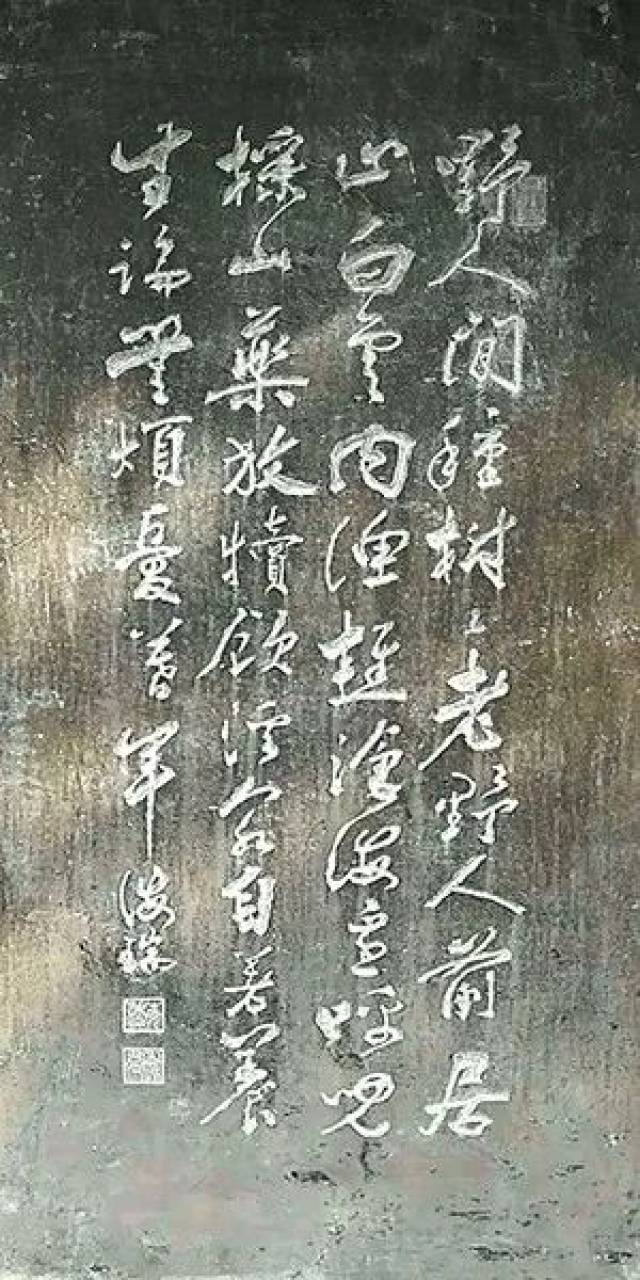 野人閒種樹〻老野人前居
止白雲內漁樵滄海邊呼兒
採山藥放犢飲溪泉自著養
生論無煩憂暮年 海瑞